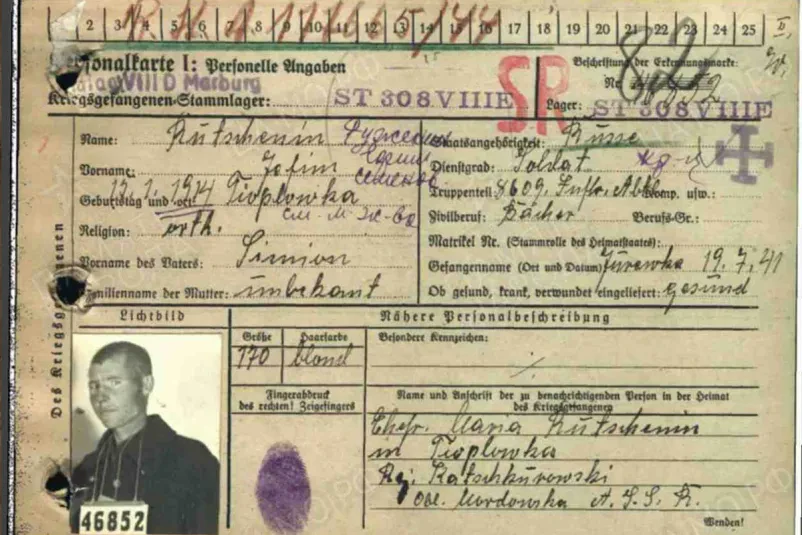 2 3 4 5 6 7 8 9 10 11 12 13 14 15 16 17 18 19 20 21 22 23 24 25
Personalkarte I: Personelle Angaben
Beschriftung der Erkennungsmarke:
Stalag VIII D Marburg
SR
82
Nr.
Kriegsgefangenen-Stammlager: ST 308 VIIIE
Lager: ST 308 VIIIE
Name: Kutschenin
Staatsangehörigkeit: Russe
Vorname: Jofim
Dienstgrad: Soldat
Geburtstag und -ort: 1914 Tioplowka
Truppenteil: 8609. Komp. usw.:
Zivilberuf: Bäcker Berufs-Gr.:
Religion: orth.
Matrikel Nr. (Stammrolle des Heimatstaates):
Vorname des Vaters: Simion
Gefangenname (Ort und Datum): Jurewka 19.7.41
Familienname der Mutter: unbekant
Ob gesund, krank, verwundet eingeliefert: gesund
Des Kriegsgefangenen
Lichtbild
Nähere Personalbeschreibung
Größe
Haarfarbe
Besondere Kennzeichen:
170
blond
Fingerabdruck
des rechten! Zeigefingers
Name und Anschrift der zu benachrichtigenden Person in der Heimat
des Kriegsgefangenen
Ehefr. Maria Kutschenin
in Tioplowka
Katschkurowski
Mordowska A. S. S. R.
46852
Wenden!